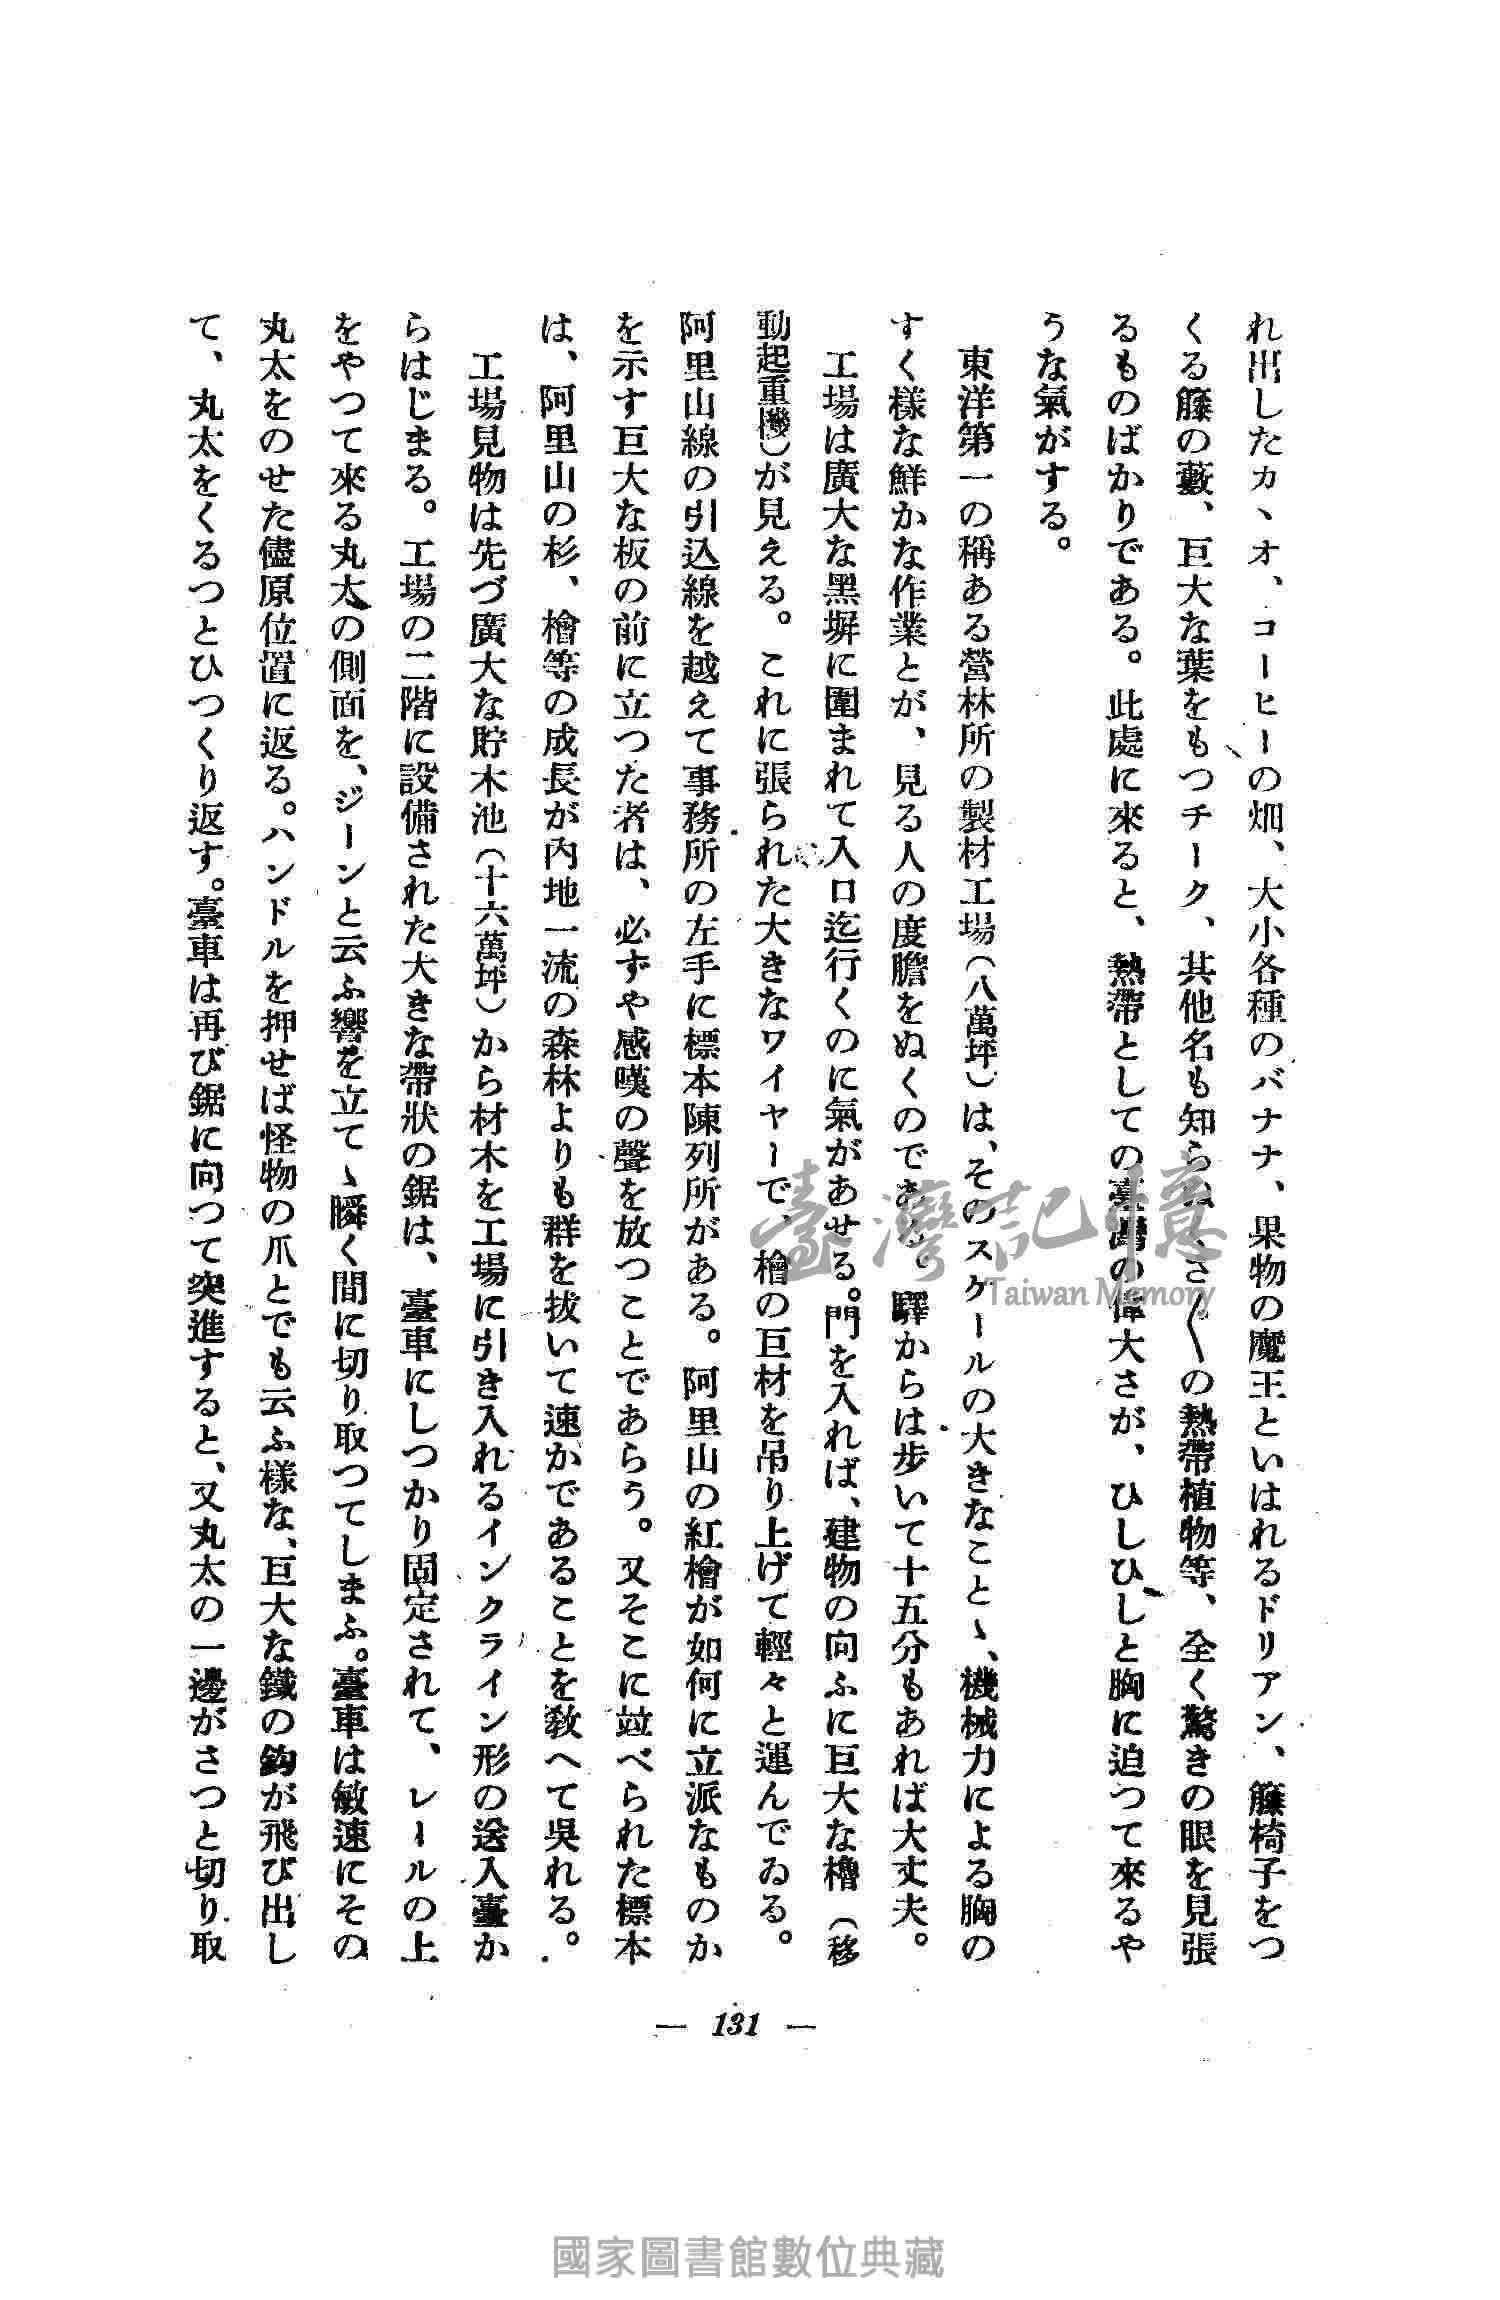 れ出したカヽオ、コーヒーの畑、大小各種のバナナ、果物の魔王といはれるドリアン、籐椅子をつ
くる籐の藪、巨大な葉をもつチーク、其他名も知らぬくさ〴〵の熱帶植物等、全く驚きの眼を見張
るものばかりである。此處に來ると、熱帶としての臺灣の偉大さが、ひしひしと胸に迫つて來るや
うな氣がする。
東洋第一の稱ある營林所の製材工場（八萬坪）は、そのスケールの大きなことゝ、機械力による胸の
すく樣な鮮かな作業とが、見る人の度膽をぬくのである。驛からは歩いて十五分もあれば大丈夫。
工場は廣大な黑塀に圍まれて入口迄行くのに氣があせる。門を入れば、建物の向ふに巨大な櫓（移
動起重機）が見える。これに張られた大きなワイヤーで、檜の巨材を吊り上げて輕々と運んでゐる。
阿里山線の引込線を越えて事務所の左手に標本陳列所がある。阿里山の紅檜が如何に立派なものか
を示す巨大な板の前に立つた者は、必ずや感嘆の聲を放つことであらう。又そこに竝べられた標本
は、阿里山の杉、檜等の成長が内地一流の森林よりも群を拔いて速かであることを敎へて吳れる。
工場見物は先づ廣大な貯木池（十六萬坪）から材木を工場に引き入れるインクライン形の送入臺か
らはじまる。工場の二階に設備された大きな帶狀の鋸は、臺車にしつかり固定されて、レールの上
をやつて來る丸太の側面を、ジーンと云ふ響を立てゝ瞬く間に切り取つてしまふ。臺車は敏速にその
丸太をのせた儘原位置に返る。ハンドルを押せば怪物の爪とでも云ふ樣な、巨大な鐵の鈎が飛び出し
て、丸太をくるつとひつくり返す。臺車は再び鋸に向つて突進すると、又丸太の一邊がさつと切り取
— 131 —
臺灣記憶
Taiwan Memory
國家圖書館數位典藏